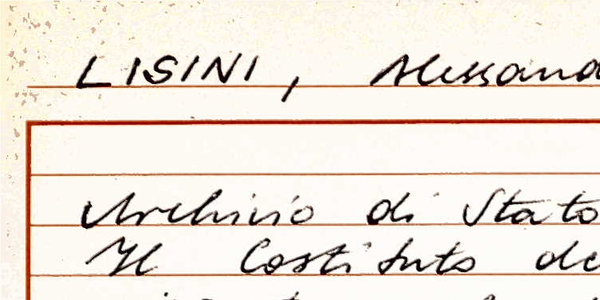 LISINI, Alessand
Archivio di Stato
Il Costituto de